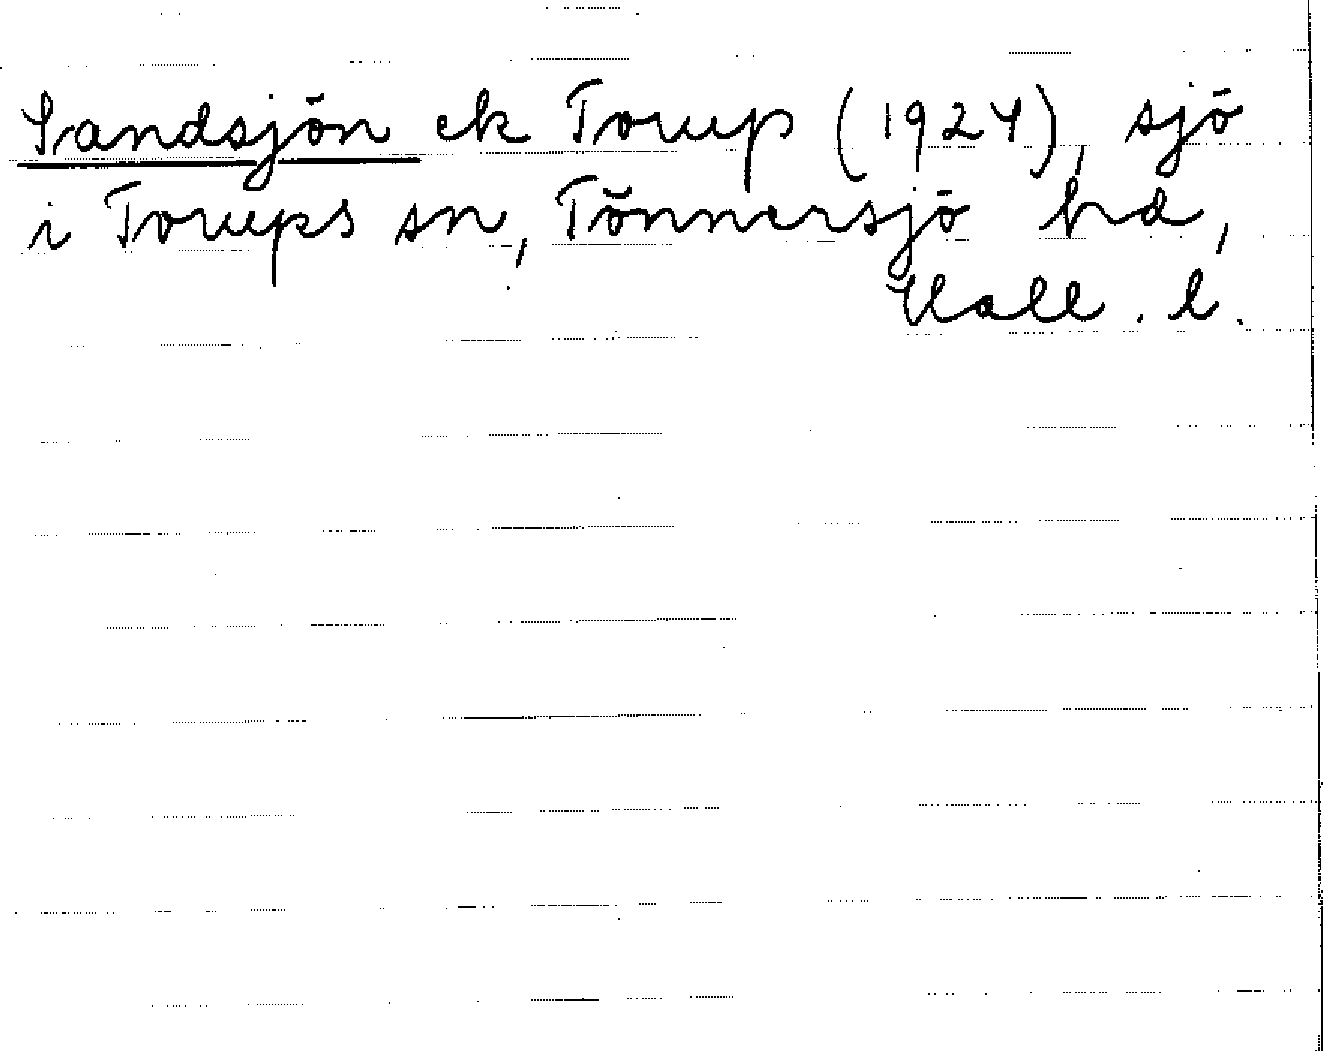 Sandsjön ek Torup (1924), sjö
i Torups sn, Tönnersjö hd,
Hall. l.